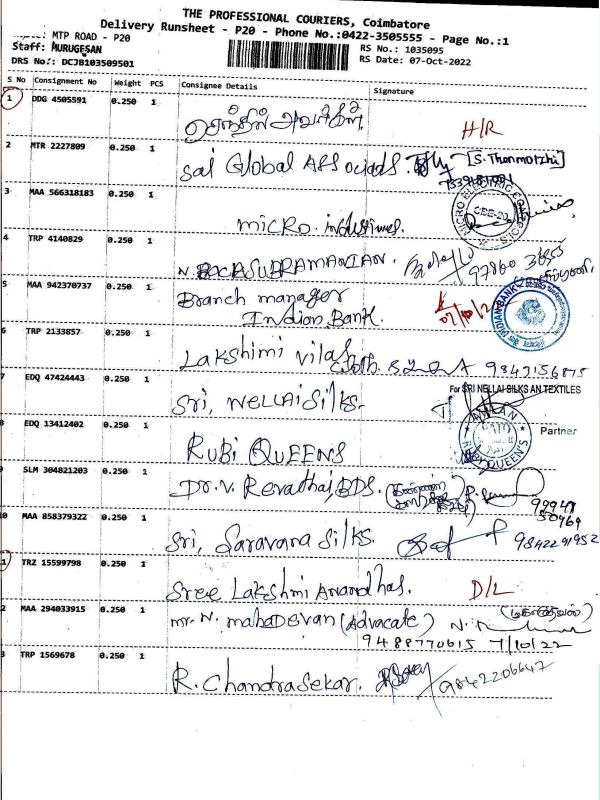 THE PROFESSIONAL COURIERS, Coimbatore
Delivery Runsheet - P20 - Phone No.:0422-3505555 - Page No.:1
MTP ROAD - P20
Staff: MURUGESAN
RS No.: 1035095
DRS No.: DCJB103509501
RS Date: 07-Oct-2022
S No Consignment No Weight PCS Consignee Details Signature
1 DDG 4505591 0.250 1
செந்தில் அவர்கள். H/R
2 MTR 2227809 0.250 1
Sai Global Associads. [S. Thenmotzhi]
3 MAA 566318183 0.250 1
micro. industries.
4 TRP 4140829 0.250 1
N. BALASUBRAMANIAN.
5 MAA 942370737 0.250 1
Branch manager
Indian Bank.
07/10/2
INDIAN BANK
6 TRP 2133857 0.250 1
Lakshimi Vilas Cloth. 9843156875
7 EDQ 47424443 0.250 1
For SRI NELLAI SILKS AN TEXTILES
Sri, NELLAI Silks.
Partner
8 EDQ 13412402 0.250 1
RUBI QUEENS
9 SLM 304821203 0.250 1
Dr. V. Revathai, BDS.
10 MAA 858379322 0.250 1
Sri, Saravana Silks. 9842291952
11 TRZ 15599798 0.250 1
Sree Lakshmi Anandhas. D/L
12 MAA 294033915 0.250 1
mr. N. mahadevan (Advocate)
9488770615 7/10/22
13 TRP 1569678 0.250 1
R. Chandrasekar. 9842206647